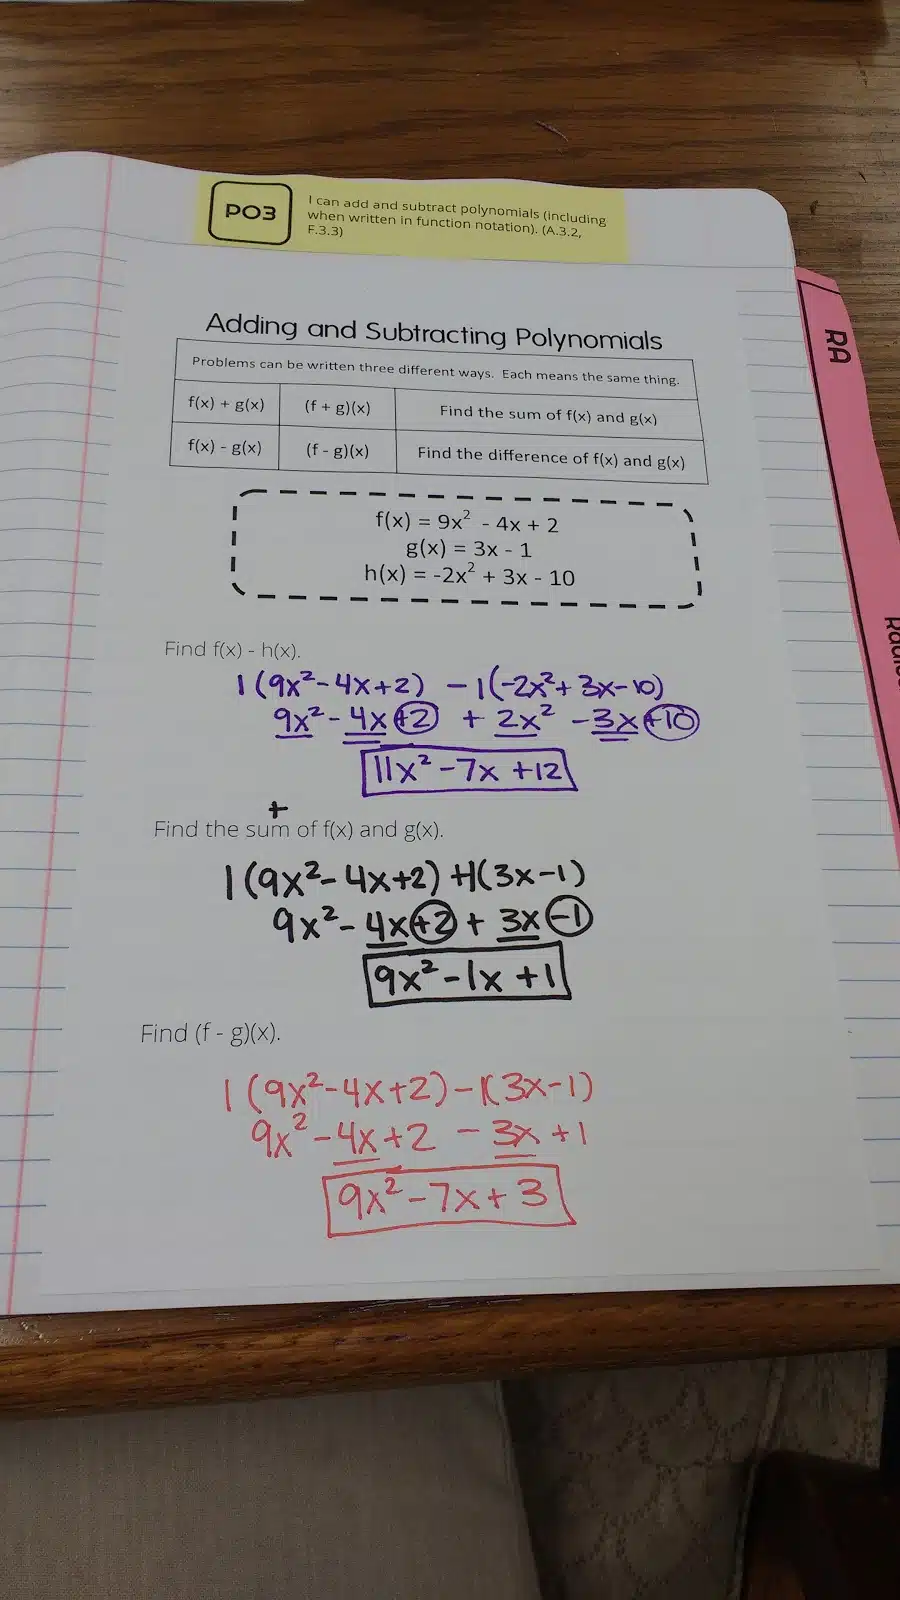 PO3
I can add and subtract polynomials (including
when written in function notation). (A.3.2,
F.3.3)
RA
Adding and Subtracting Polynomials
Problems can be written three different ways. Each means the same thing.
f(x) + g(x) (f + g)(x) Find the sum of f(x) and g(x)
f(x) - g(x) (f - g)(x) Find the difference of f(x) and g(x)
f(x) = 9x² - 4x + 2
g(x) = 3x - 1
h(x) = -2x² + 3x - 10
Find f(x) - h(x).
1(9x²-4x+2) -1(-2x²+3x-10)
9x²-4x+2 + 2x² -3x+10
11x²-7x+12
+
Find the sum of f(x) and g(x).
1(9x²-4x+2)+1(3x-1)
9x²-4x+2+3x-1
9x²-1x+1
Find (f - g)(x).
1(9x²-4x+2)-1(3x-1)
9x²-4x+2 -3x+1
9x²-7x+3